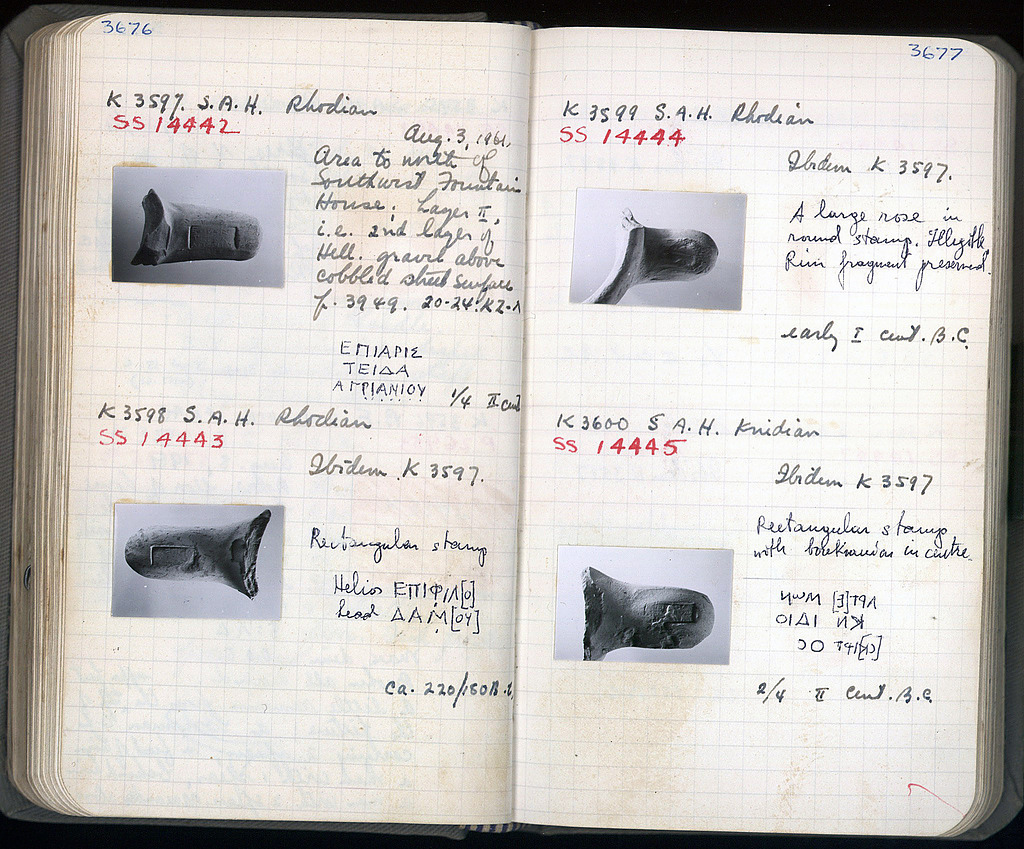 3676
K 3597. S.A.H. Rhodian
SS 14442
Aug. 3, 1961
Area to north of
Southwest Fountain
House; Layer II,
i.e. 2nd layer of
Hell. gravel above
cobbled street surface
p. 3949. 20-24:ΚΖ-Λ
ΕΠΙΑΡΙΣ
ΤΕΙΔΑ
ΑΓΡΙΑΝΙΟΥ
1/4 II cent
K 3598 S.A.H. Rhodian
SS 14443
Ibidem K 3597.
Rectangular stamp
Helios ΕΠΙΦΙΛ[Ο]
head ΔΑΜ[ΟΥ]
ca. 220/180 B.C.
3677
K 3599 S.A.H. Rhodian
SS 14444
Ibidem K 3597.
A large rose in
round stamp. Illegible.
Rim fragment preserved.
early I cent. B.C.
K 3600 S A.H. Knidian
SS 14445
Ibidem K 3597
Rectangular stamp
with boukranion in centre.
ΚΝ ΙΔΙΟ
2/4 II cent. B.C.